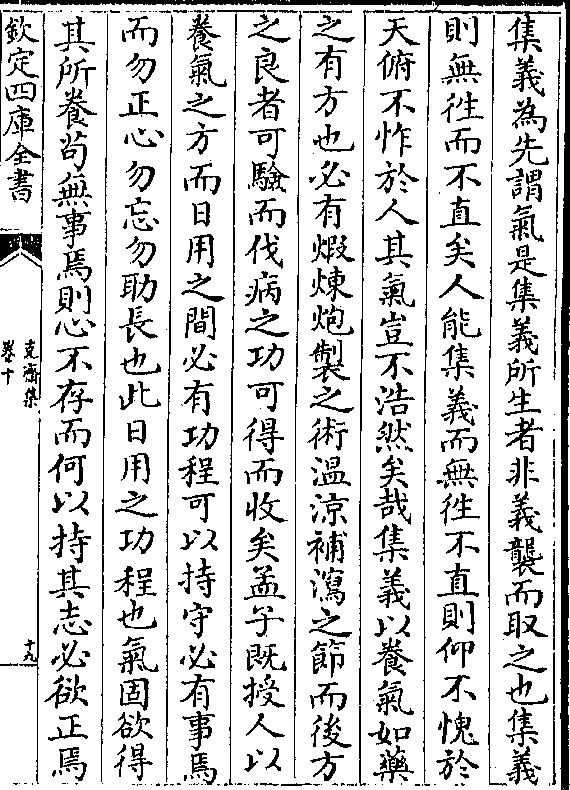 集義為先謂氣是集義所生者非義襲而取之也集義
則無徃而不直矣人能集義而無徃不直則仰不愧於
天俯不怍於人其氣豈不浩然矣哉集義以養氣如藥
之有方也必有煆煉炮製之術温涼補瀉之節而後方
之良者可驗而伐病之功可得而收矣孟子既授人以
養氣之方而日用之間必有功程可以持守必有事焉
而勿正心勿忘勿助長也此日用之功程也氣固欲得
其所養苟無事焉則心不存而何以持其志必欲正焉
欽定四庫全書
克齋集
卷十
十九